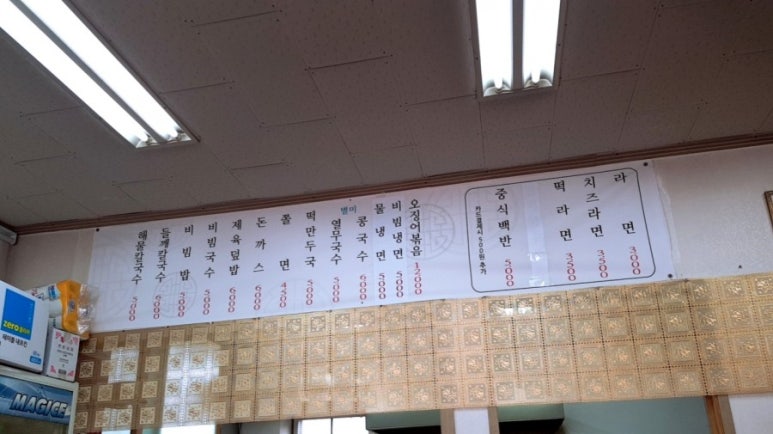 라면 3000
치즈라면 3500
떡라면 3500
중식백반 5000
카드결제시 500원 추가
오징어볶음 12000
비빔냉면 5000
물냉면 5000
별미
콩국수 6000
열무국수 5000
떡만두국 5000
쫄면 4500
돈까스 6000
제육덮밥 6000
비빔국수 5000
비빔밥 5000
들깨칼국수 6000
해물칼국수 5000
zero
MAGICE